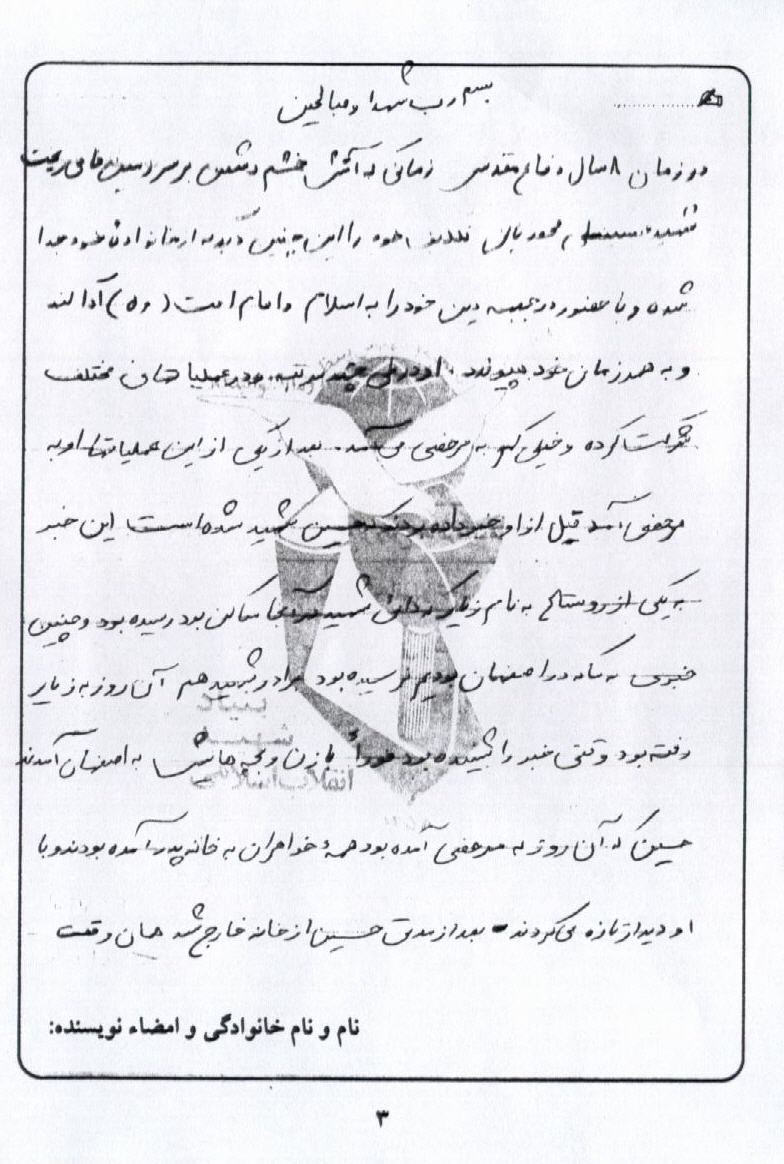 بسم رب شهدا و صالحین
در زمان ۸ سال دفاع مقدس زمانی که آتش خشم دشمن بر سر و سینه ها می ریخت
شهید خود را این چنین دید که از خانواده خود جدا
شده و با حضور در جبهه دین خود را به اسلام و امام امت (ره) ادا کند
و به همرزمان خود بپیوندد. او در طی چند مرتبه در عملیا های مختلف
شرکت کرده و خیلی کم به مرخصی می آمد. بعد از یکی از این عملیاتها او به
مرخصی آمد قبل از او خبر داده بودند که حسین شهید شده است این خبر
به یکی از روستاها به نام زیار که دائی شهید در آنجا ساکن بود رسیده بود و چنین
خبری به ما که در اصفهان بودیم نرسیده بود برادر شهید هم آن روز به زیار
رفته بود وقتی خبر را شنیده بود فوراً با زن و بچه هایش به اصفهان آمدند
حسین که آن روز به مرخصی آمده بود همهٔ خواهران به خانه پدر آمده بودند و با
او دیدار تازه می کردند. بعد از مدتی حسین از خانه خارج شد همان وقت
بنیاد
شهید
انقلاب اسلامی
نام و نام خانوادگی و امضاء نویسنده:
۳